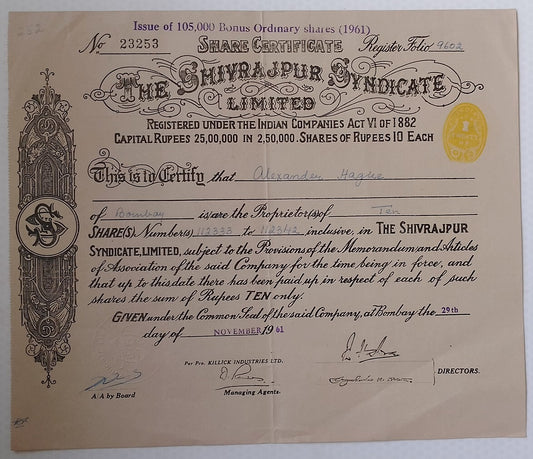 252
Issue of 105,000 Bonus Ordinary shares (1961)
No 23253 SHARE CERTIFICATE Register Folio 9602
THE SHIVRAJPUR SYNDICATE
LIMITED
REGISTERED UNDER THE INDIAN COMPANIES ACT VI OF 1882
CAPITAL RUPEES 25,00,000 IN 2,50,000. SHARES OF RUPEES 10 EACH
This is to Certify that Alexander Hague
of Bombay is/are the Proprietor(s) of Ten
SHARE(S) Number(s) 112333 to 112342 inclusive, in THE SHIVRAJPUR
SYNDICATE, LIMITED, subject to the Provisions of the Memorandum and Articles
of Association of the said Company for the time being in force, and
that up to this date there has been paid up in respect of each of such
shares the sum of Rupees TEN only.
GIVEN under the Common Seal of the said Company, at Bombay the 29th
day of NOVEMBER 1961
Per Pro. KILLICK INDUSTRIES LTD.
A/A by Board
Managing Agents.
DIRECTORS.